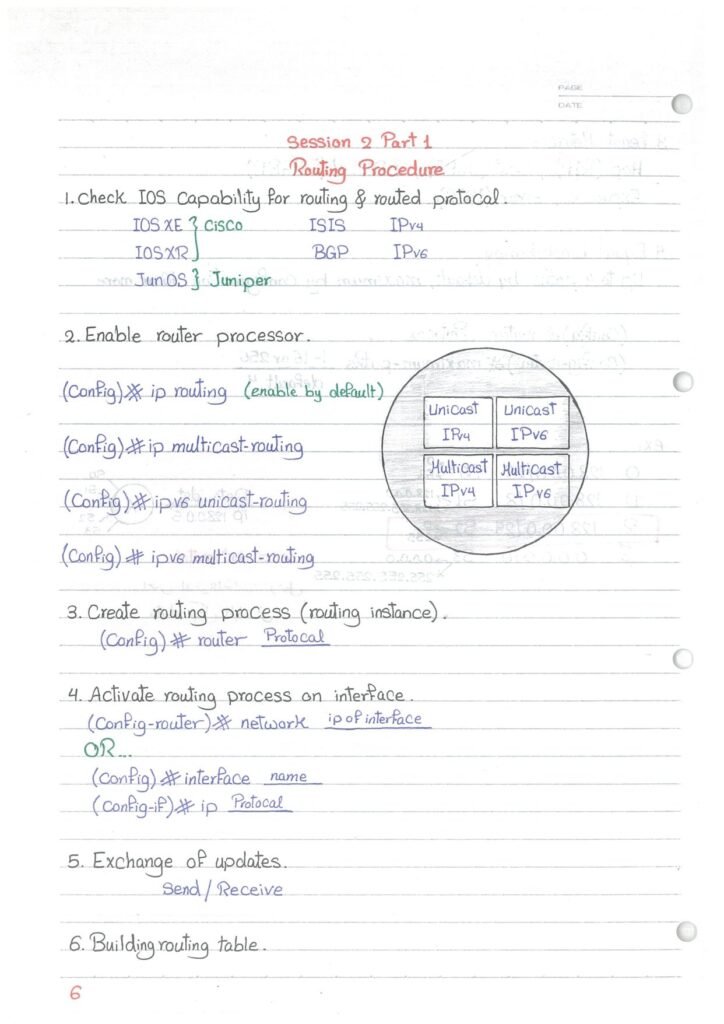 PAGE
DATE
Session 2 Part 1
Routing Procedure
1. Check IOS Capability for routing & routed protocal.
IOS XE } Cisco ISIS IPv4
IOS XR BGP IPv6
Jun OS } Juniper
2. Enable router processor.
(Config)# ip routing (enable by default)
(Config)# ip multicast-routing
(Config)# ipv6 unicast-routing
(Config)# ipv6 multicast-routing
Unicast Unicast
IPv4 IPv6
Multicast Multicast
IPv4 IPv6
3. Create routing process (routing instance).
(Config)# router Protocal
4. Activate routing process on interface.
(Config-router)# network ip of interface
OR...
(Config)# interface name
(Config-if)# ip Protocal
5. Exchange of updates.
Send / Receive
6. Building routing table.
6